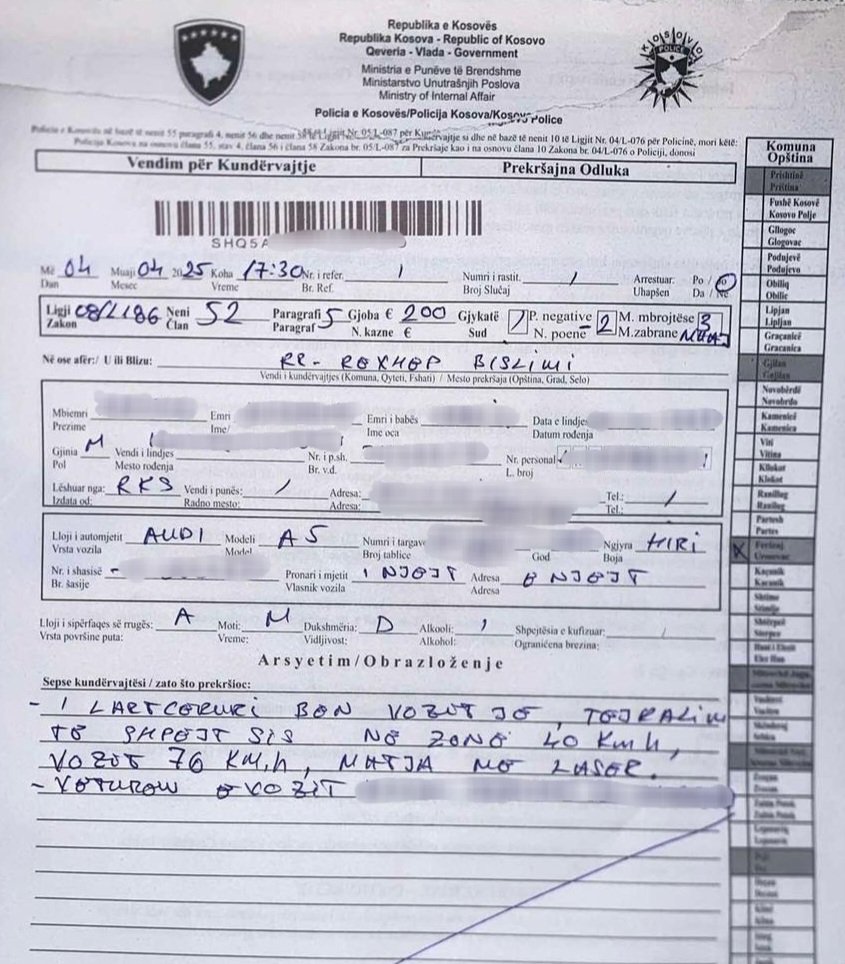 Republika e Kosovës
Republika Kosova - Republic of Kosovo
Qeveria - Vlada - Government
Ministria e Punëve të Brendshme
Ministarstvo Unutrašnjih Poslova
Ministry of Internal Affair
Policia e Kosovës/Policija Kosova/Kosovo Police
KOSOVO
POLICE
Policia e Kosovës në bazë të nenit 55 paragrafi 4, nenit 56 dhe nenit 58 të Ligjit Nr. 05/L-087 për Kundërvajtje si dhe në bazë të nenit 10 të Ligjit Nr. 04/L-076 për Policinë, mori këtë:
Policija Kosova na osnovu člana 55, stav 4, člana 56 i člana 58 Zakona br. 05/L-087 za Prekršaje kao i na osnovu člana 10 Zakona br. 04/L-076 o Policiji, donosi
Vendim për Kundërvajtje Prekršajna Odluka
SHQ5A
Më 04 Muaji 04 2025 Koha 17:30 Nr. i refer. / Numri i rastit. / Arrestuar. Po / Jo
Dan Mesec Vreme Br. Ref. Broj Slučaj Uhapšen Da / Ne
Ligji 08/L186 Neni 52 Paragrafi 5 Gjoba € 200 Gjykatë / P. negative 2 M. mbrojtëse 3
Zakon Član Paragraf N. kazne € Sud N. poene M. zabrane MUAJ
Në ose afër:/ U ili Blizu: RR- REXHEP BISLIMI
Vendi i kundërvajtjes (Komuna, Qyteti, Fshati) / Mesto prekršaja (Opština, Grad, Selo)
Mbiemri Emri Emri i babës Data e lindjes
Prezime Ime/ Ime oca Datum rođenja
Gjinia M Vendi i lindjes Nr. i p.sh. Nr. personal
Pol Mesto rođenja Br. v.d. L. broj
Lëshuar nga: RKS Vendi i punës: / Adresa: Tel.: /
Izdata od: Radno mesto: Adresa: Tel.:
Lloji i automjetit AUDI Modeli A5 Numri i targave Ngjyra HIRI
Vrsta vozila Model Broj tablice God Boja
Nr. i shasisë Pronari i mjetit I NJEJT Adresa E NJEJT
Br. šasije Vlasnik vozila Adresa
Lloji i sipërfaqes së rrugës: A Moti: M Dukshmëria: D Alkooli: / Shpejtësia e kufizuar: /
Vrsta površine puta: Vreme: Vidljivost: Alkohol: Ograničena brezina:
Arsyetim/Obrazloženje
Sepse kundërvajtësi / zato što prekršioc:
- I LARTCEKURI BEN VOZITJE, TEJKALIM
TE SHPEJTSIS NE ZONE 40 KM h,
VOZIT 76 KM,h, MATJA ME LASER.
- VETUREN E VOZIT
Komuna
Opština
Prishtinë
Priština
Fushë Kosovë
Kosovo Polje
Gllogoc
Glogovac
Podujevë
Podujevo
Obiliq
Obilic
Lipjan
Lipljan
Graçanicë
Gracanica
Gjilan
Gnjilan
Novobërdë
Novobrdo
Kamenicë
Kamenica
Viti
Vitina
Kllokot
Klokot
Ranillug
Ranilug
Partesh
Partes
Ferizaj
Urosevac
X
Kaçanik
Kacanik
Shtime
Stimlje
Shtërpcë
Sterpce
Hani i Elezit